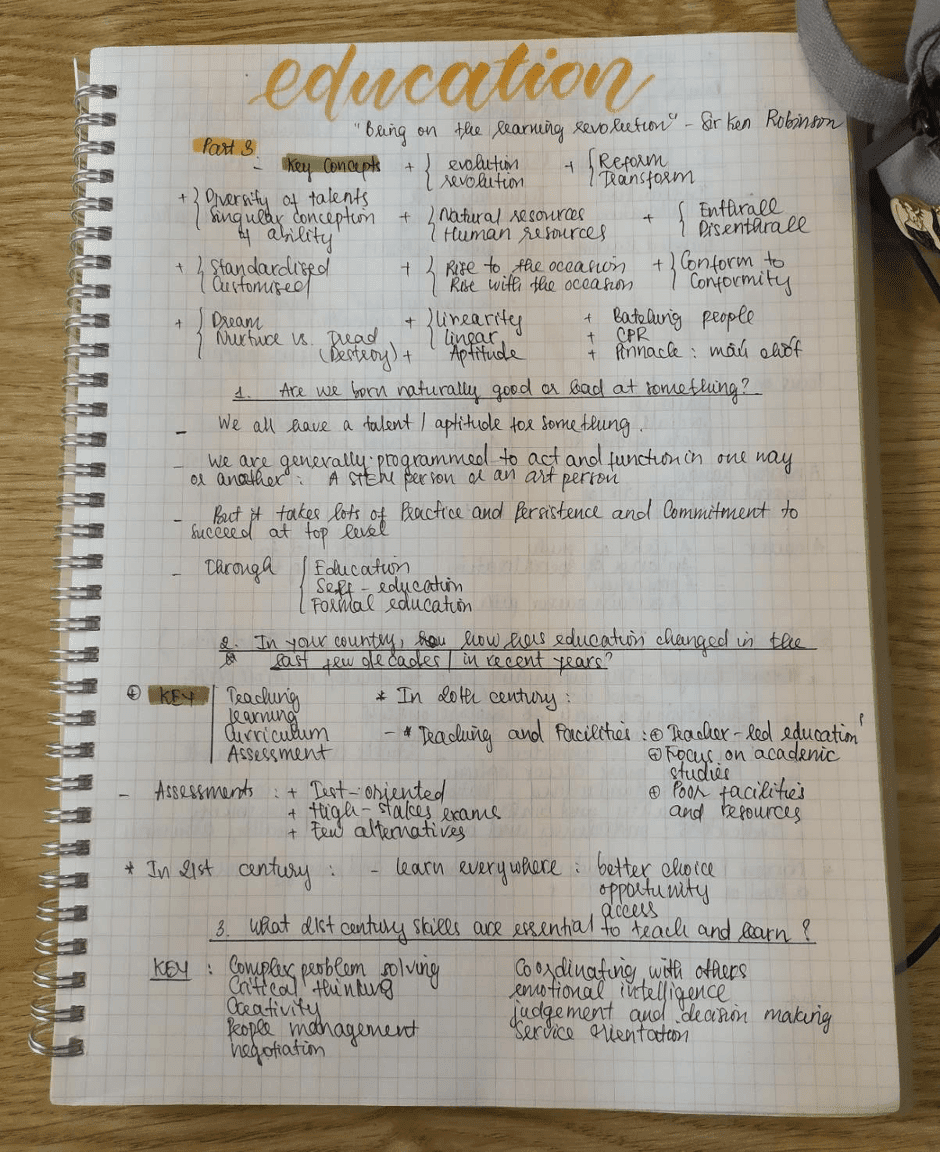 education
"Bring on the learning revolution" - Sir Ken Robinson
Part 3
- Key Concepts + { evolution + { Reform
revolution Transform
+ { Diversity of talents
singular conception + { Natural resources + { Enthrall
of ability Human resources Disenthrall
+ { Standardised + { Rise to the occasion + { Conform to
Customised Rise with the occasion Conformity
+ { Dream + { linearity + Batching people
Nurture vs. Dread linear + CPR
(Destroy) + Aptitude + Pinnacle : máu chốt
1. Are we born naturally good or bad at something?
- We all have a talent / aptitude for something.
- We are generally programmed to act and function in one way
or another : A STEM person or an art person
- But it takes lots of Practice and Persistence and Commitment to
succeed at top level
- Through { Education
Self - education
Formal education
2. In your country, how has education changed in the
last few decades / in recent years?
+ KEY | Teaching * In 20th century :
learning
Curriculum - * Teaching and Facilities : + Teacher-led education
Assessment + Focus on academic
studies
- Assessments : + Test-oriented + Poor facilities
+ High-stakes exams and resources
+ Few alternatives
* In 21st century : - learn everywhere : better choice
opportunity
access
3. What 21st century skills are essential to teach and learn ?
KEY : Complex problem solving Coordinating with others
Critical thinking emotional intelligence
Creativity judgement and decision making
People management service orientation
negotiation